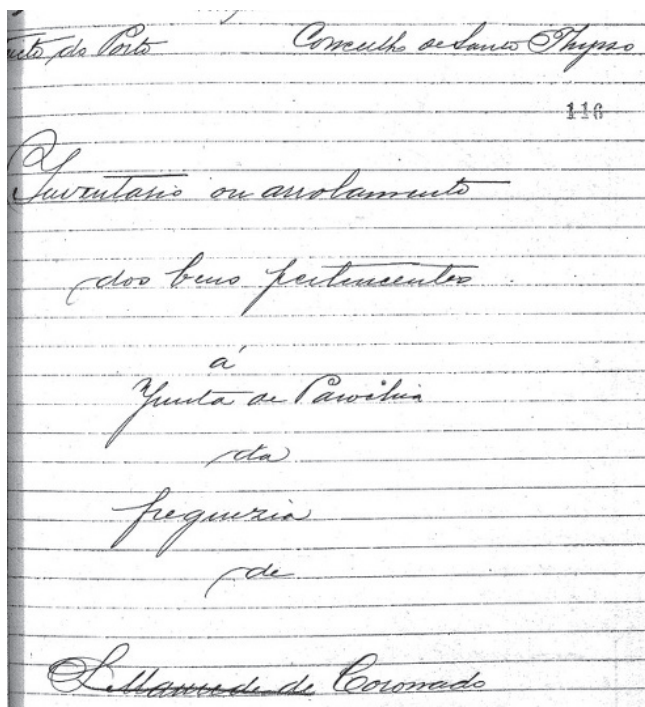 do Porto Concelho de Santo Thyrso
116
Inventario ou arrolamento
dos bens pertencentes
á
Junta de Parochia
da
freguezia
de
S. Mamede de Coronado